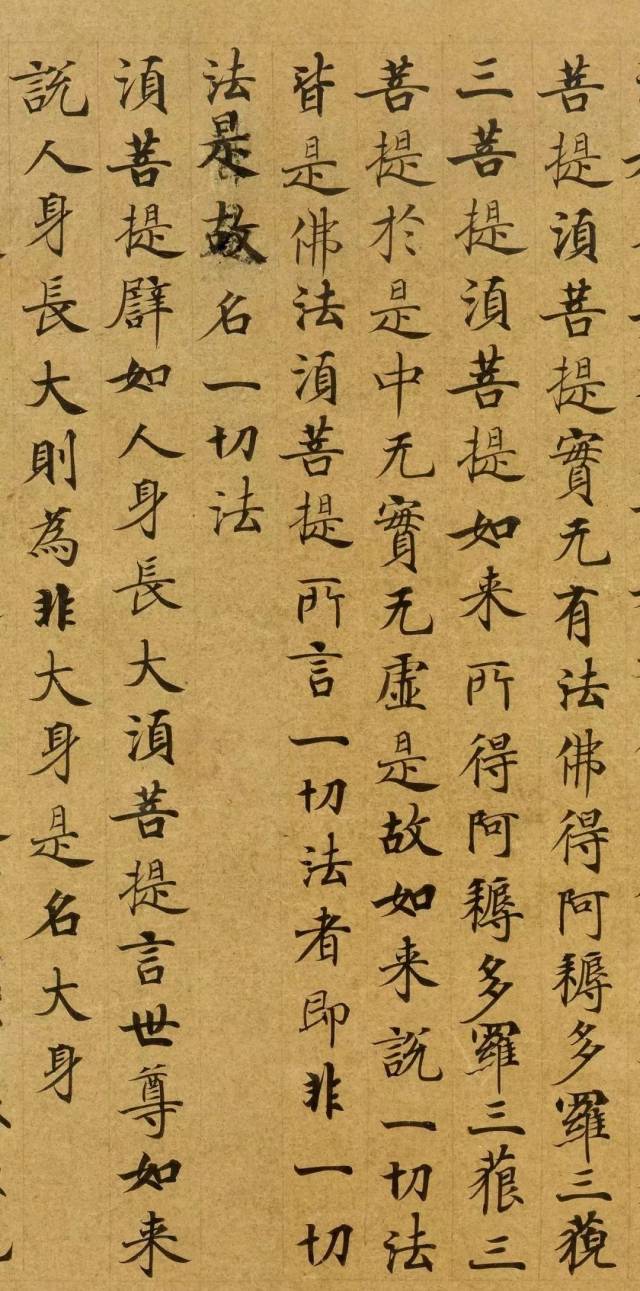 菩提湏菩提實无有法佛得阿耨多羅三藐
三菩提湏菩提如来所得阿耨多羅三藐三
菩提於是中无實无虛是故如来說一切法
皆是佛法湏菩提所言一切法者即非一切
法是故名一切法
湏菩提譬如人身長大湏菩提言世尊如来
說人身長大則為非大身是名大身